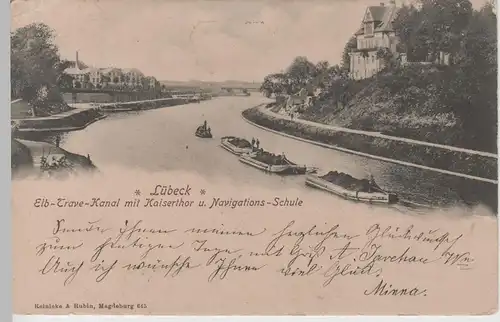 * Lübeck *
Elb-Trave-Kanal mit Kaiserthor u. Navigations-Schule
Sende Ihnen meinen herzlichen Glückwunsch
zum heutigen Tage, mit Gruß A.
Auch ich wünsche Ihnen viel Glück.
Minna.
Reinicke & Rubin, Magdeburg 645